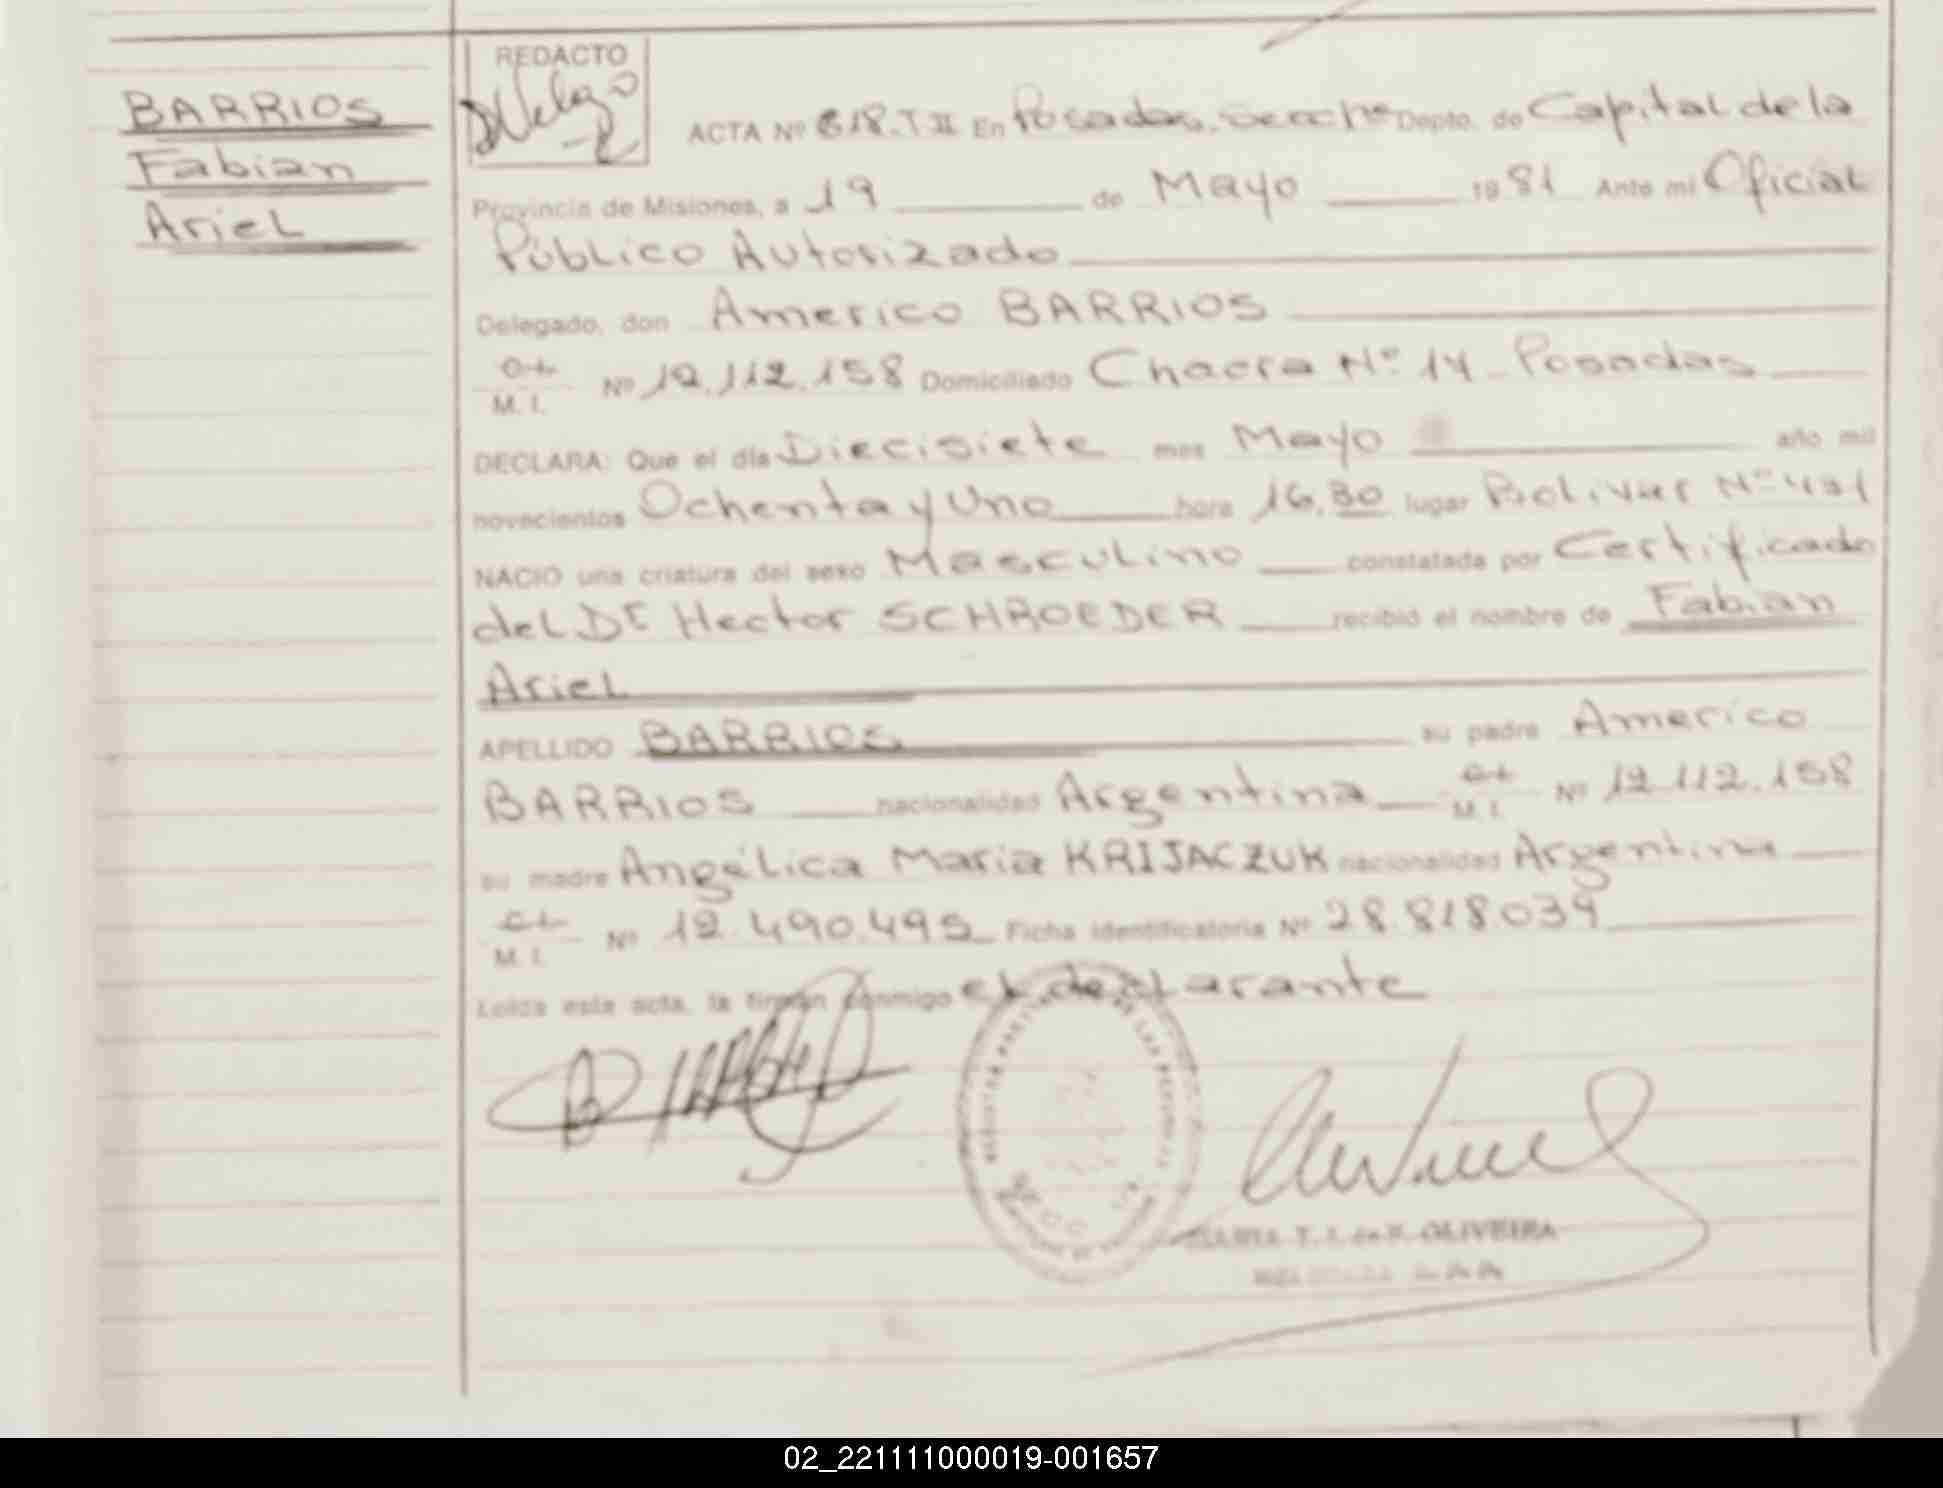 BARRIOS
Fabian
Ariel
REDACTO
ACTA Nº 618.T II En Posadas, Depto. de Capital de la
Provincia de Misiones, a 19 de Mayo 1981 Ante mi Oficial
Público Autorizado
Delegado, don Americo BARRIOS
M. I. Nº 12.112.158 Domiciliado Chacra Nº 14 - Posadas
DECLARA: Que el día Diecisiete mes Mayo año mil
novecientos Ochenta y Uno hora 16,30 lugar Bolivar Nº 431
NACIO una criatura del sexo Masculino constatada por Certificado
del Dr Hector SCHROEDER recibió el nombre de Fabian
Ariel
APELLIDO BARRIOS su padre Americo
BARRIOS nacionalidad Argentina M. I. Nº 12.112.158
su madre Angélica Maria KRIJACZUK nacionalidad Argentina
M. I. Nº 12.490.495 Ficha identificatoria Nº 28.818.039
Leída esta acta, la firman conmigo el declarante
OLIVEIRA
02_221111000019-001657